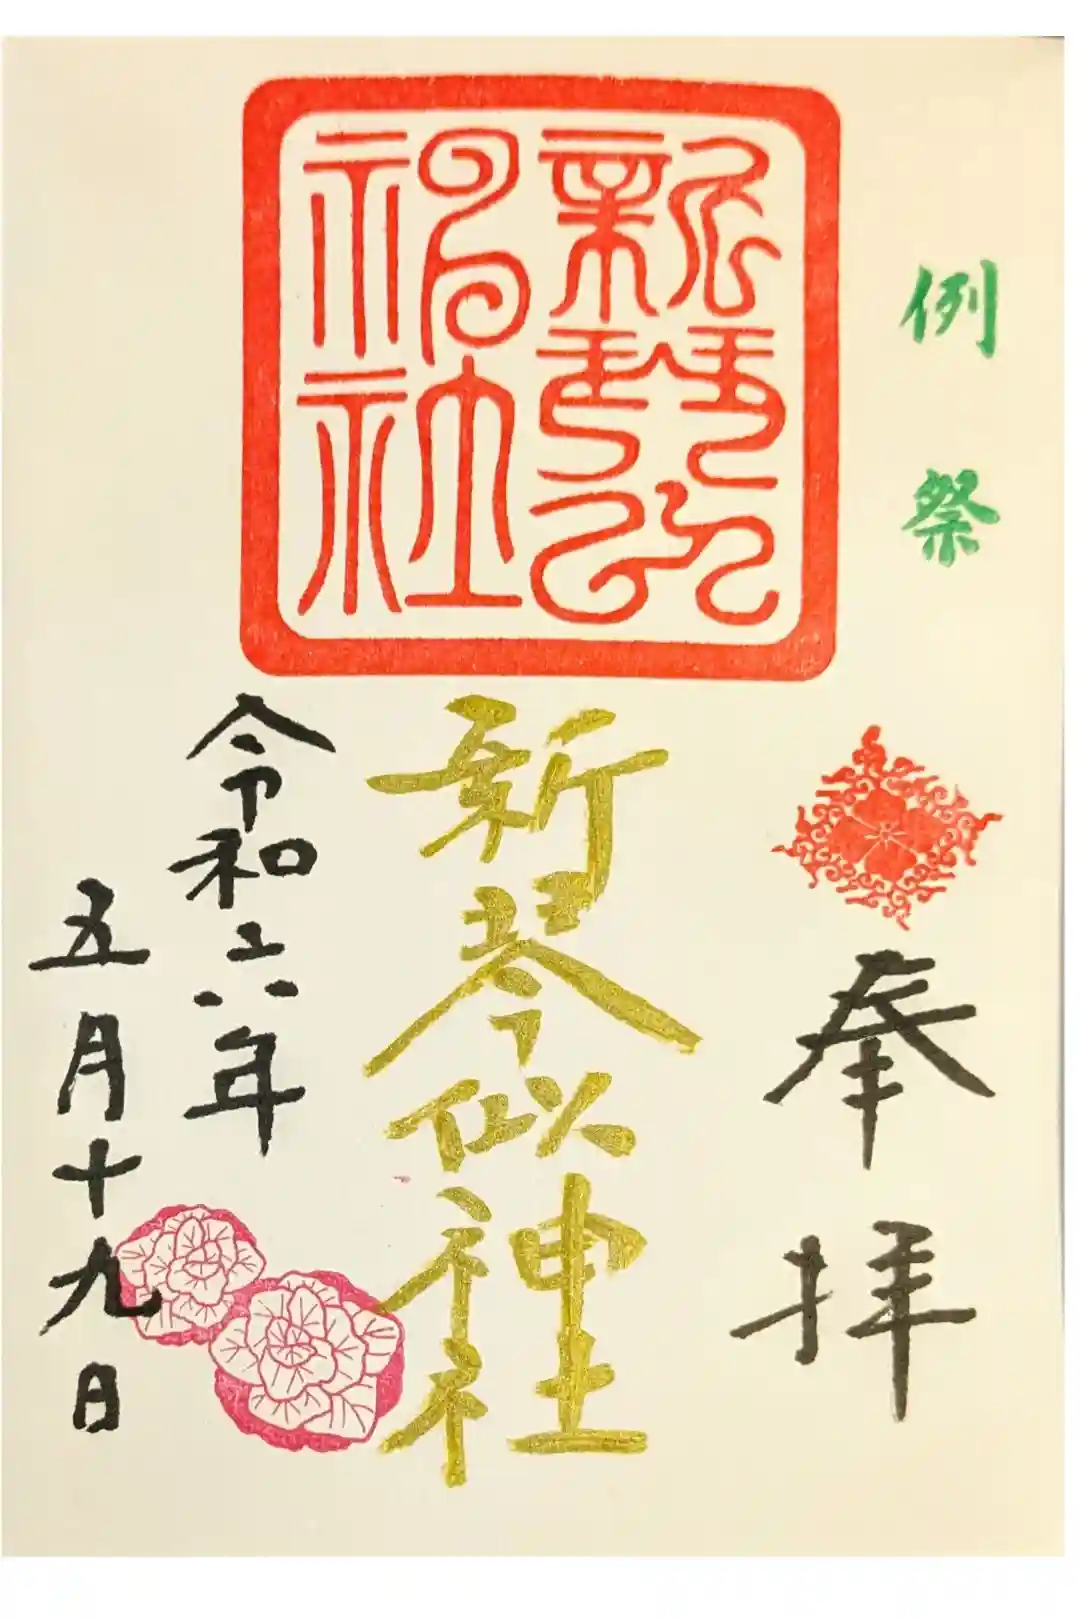 例祭
奉拝
新琴似神社
新琴似神社
令和六年
五月十九日